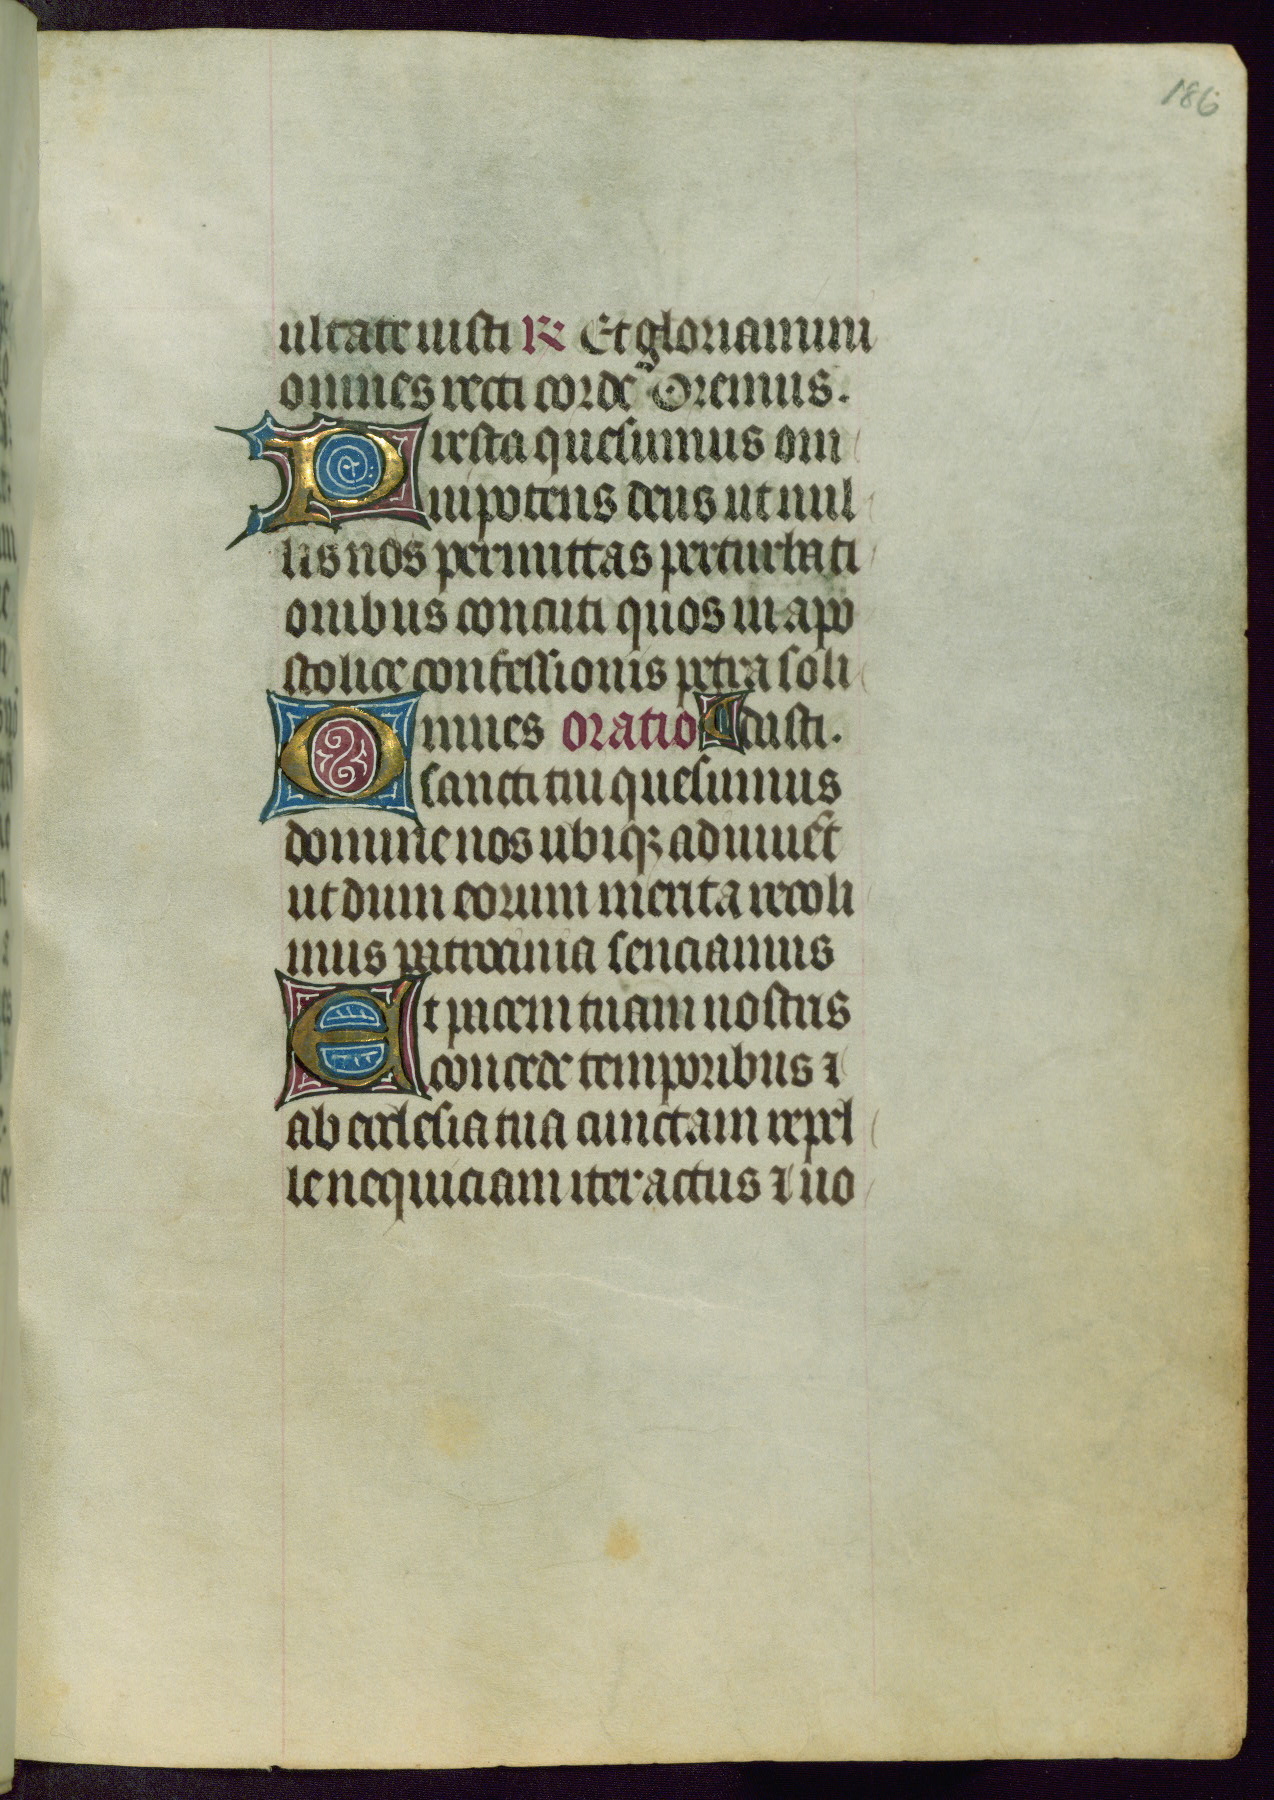 186
ultate iusti R Et gloriamini
omnes recti corde Oremus.
Presta quesumus om
nipotens deus ut nul
lis nos permittas perturbati
onibus concuti quos in apo
stolice confessionis petra soli
Omnes oratio dasti.
sancti tui quesumus
domine nos ubiqꝫ adiuuēt
ut dum eorum merita recoli
mus patrocinia senciamus
Et pacem tuam nostris
concede temporibus ⁊
ab ecclesia tua cunctam repel
le nequiciam iter actus ⁊ uo